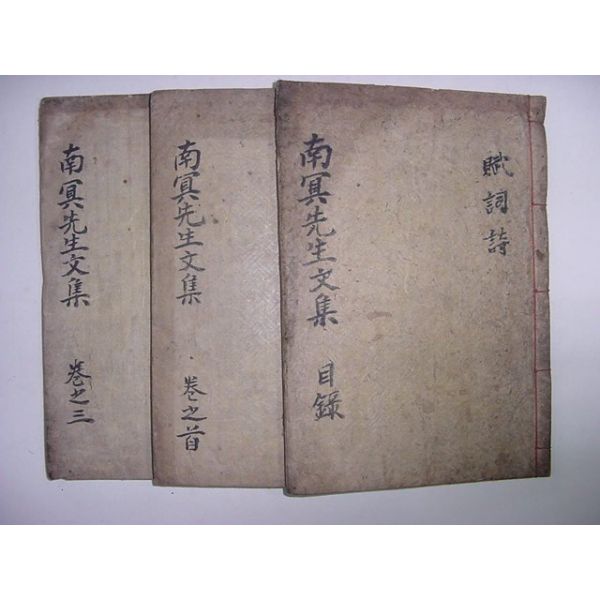 賦詞詩
南冥先生文集 目錄
南冥先生文集 卷之首
南冥先生文集 卷之三